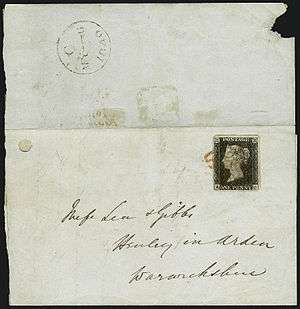 POSTAGE
ONE PENNY
Messrs Lea & Gibbs
Henley in Arden
Warwickshire